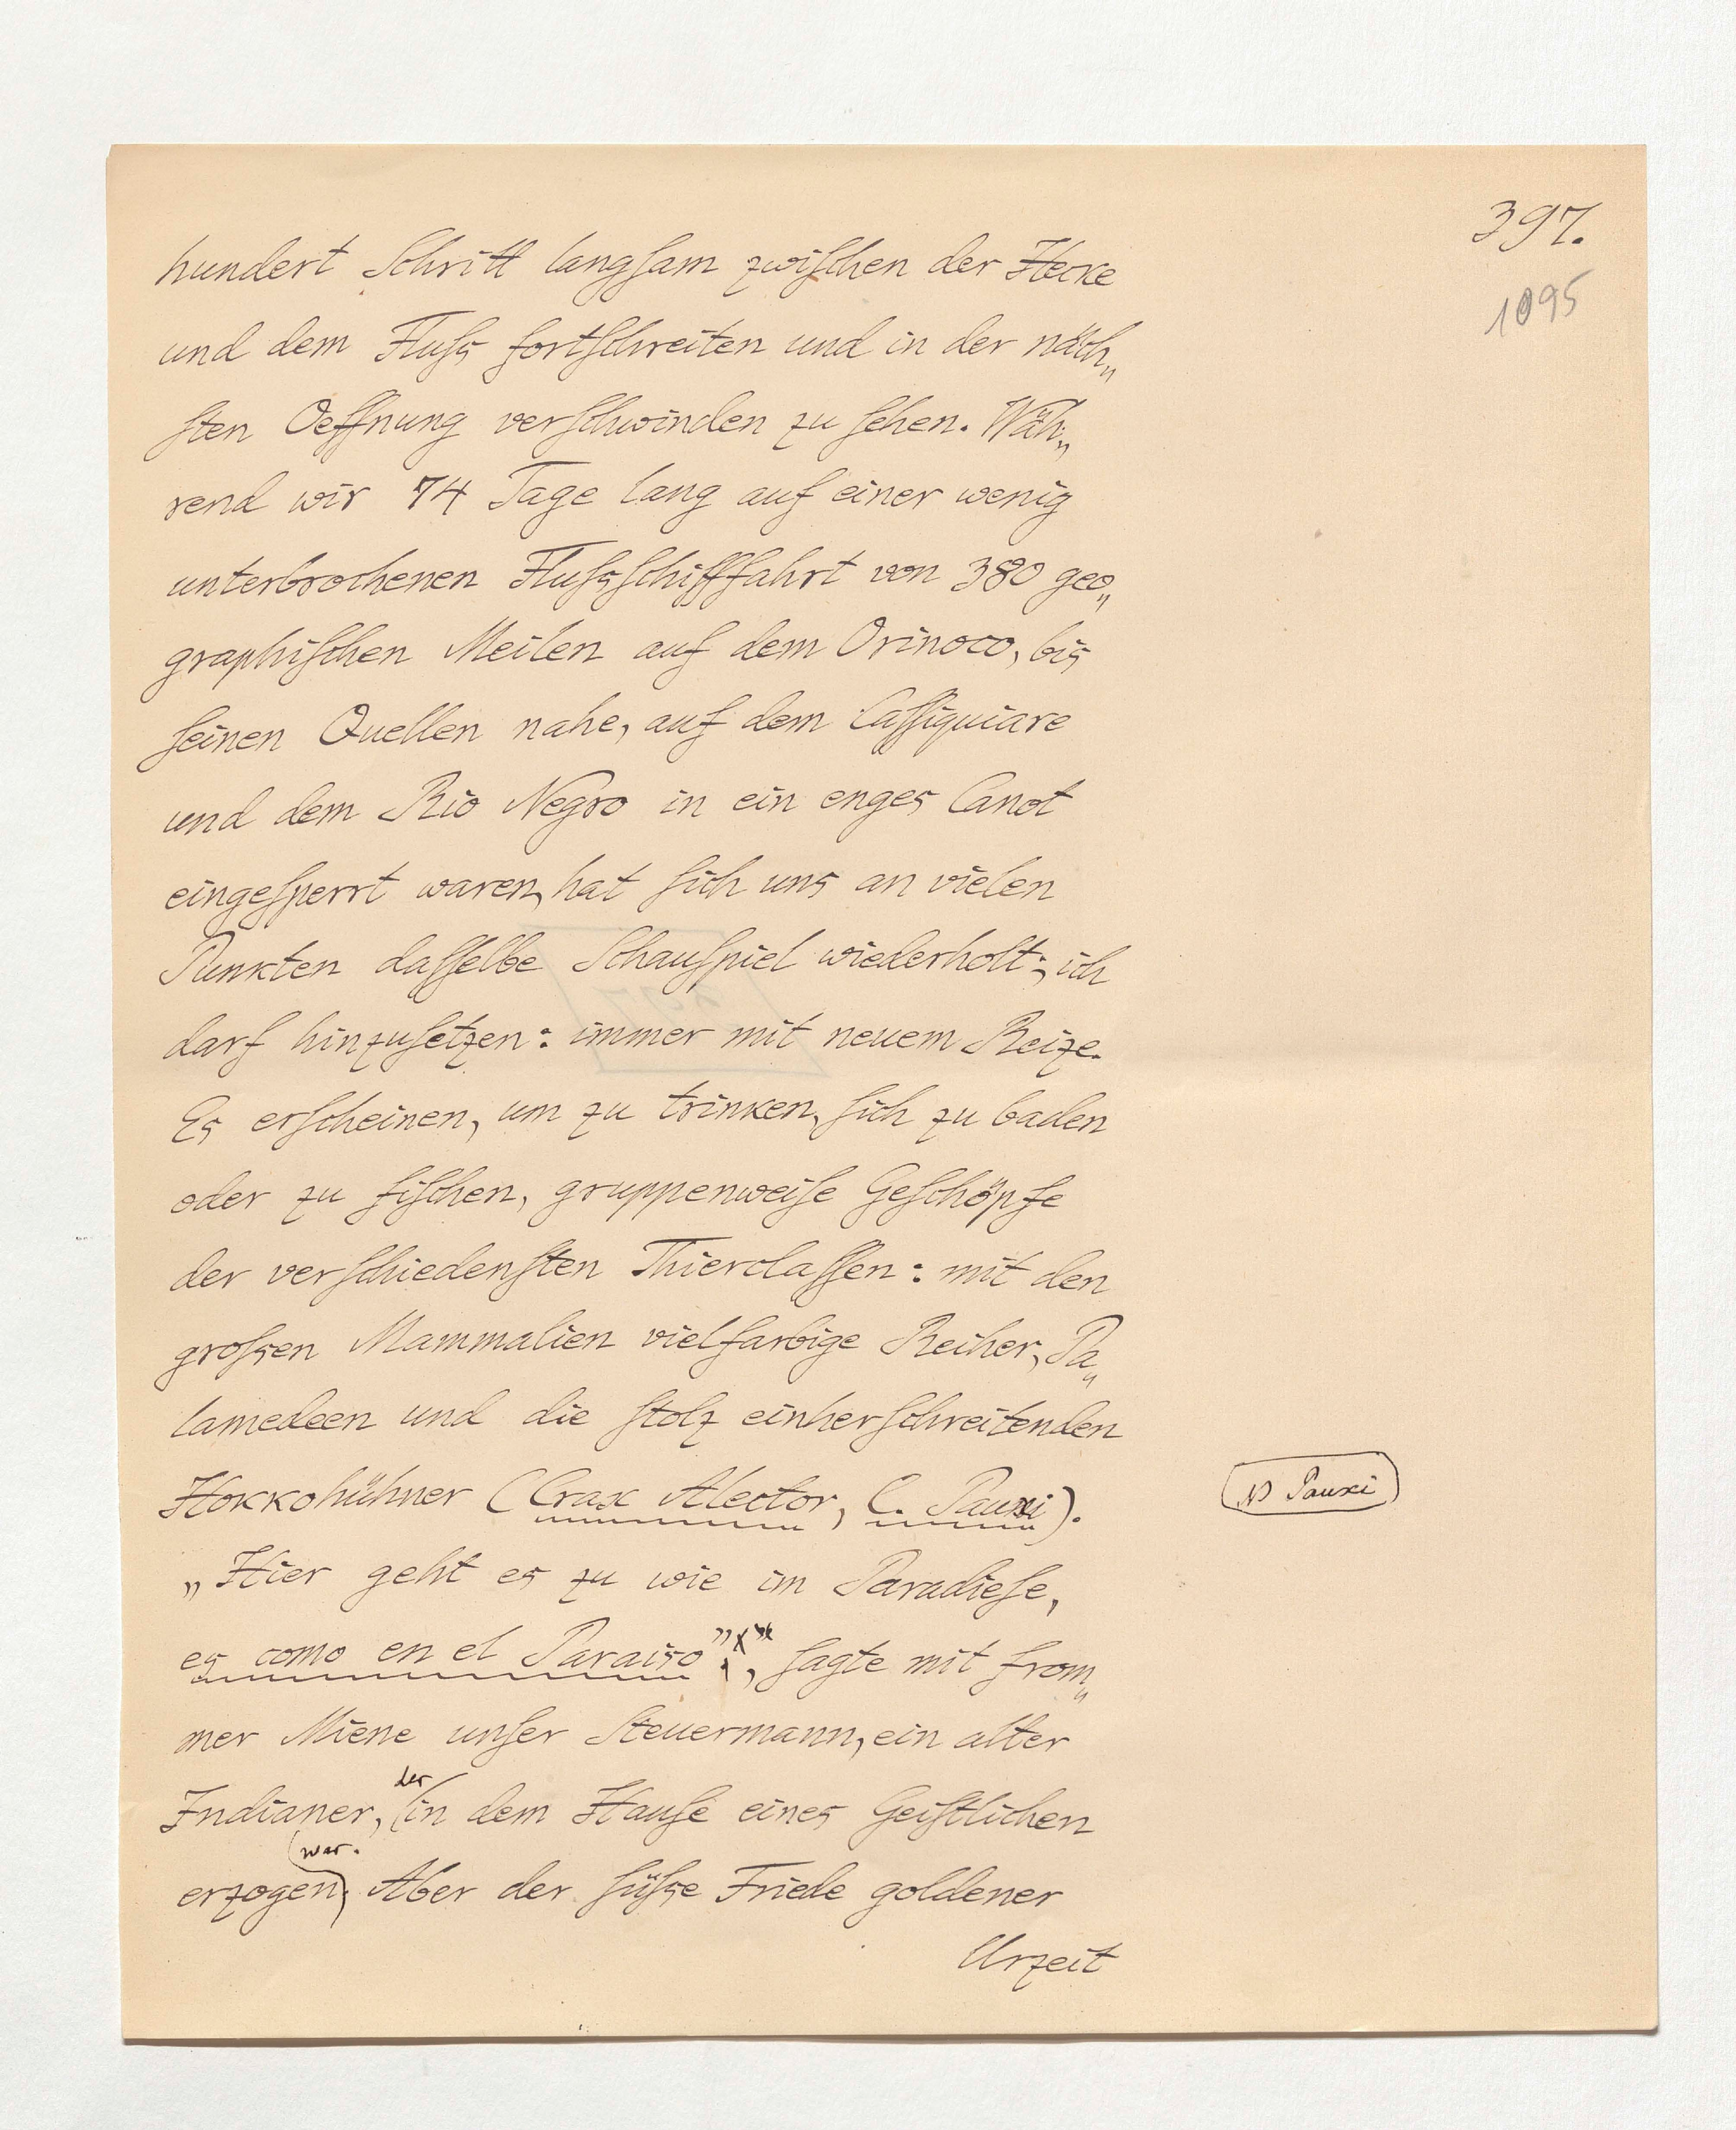 397.
1095
hundert Schritt langſam zwiſchen der Hecke
und dem Fluſs fortſchreiten und in der näch„
ſten Oeffnung verſchwinden zu ſehen. Wäh„
rend wir 74 Tage lang auf einer wenig
unterbrochenen Fluſsſchifffahrt von 380 geo„
graphiſchen Meilen auf dem Orinoco, bis
ſeinen Quellen nahe, auf dem Caſſiquiare
und dem Rio Negro in ein enges Canot
eingeſperrt waren, hat ſich uns an vielen
Punkten daſſelbe Schauſpiel wiederholt; ich
darf hinzuſetzen: immer mit neuem Reize.
Es erſcheinen, um zu trinken, ſich zu baden
oder zu fiſchen, gruppenweiſe Geſchöpfe
der verſchiedenſten Thierclaſſen: mit den
groſsen Mammalien vielfarbige Reiher, Pa„
lamedeen und die ſtolz einherſchreitenden
Hokkohühner (Crax Alector, C. Pauxi).
N Pauxi
„Hier geht es zu wie im Paradieſe,
es como en el Paraiso”, ſagte mit from„
mer Miene unſer Steuermann, ein alter
Indianer, der in dem Hauſe eines Geiſtlichen
erzogen war. Aber der ſüſse Friede goldener
Urzeit